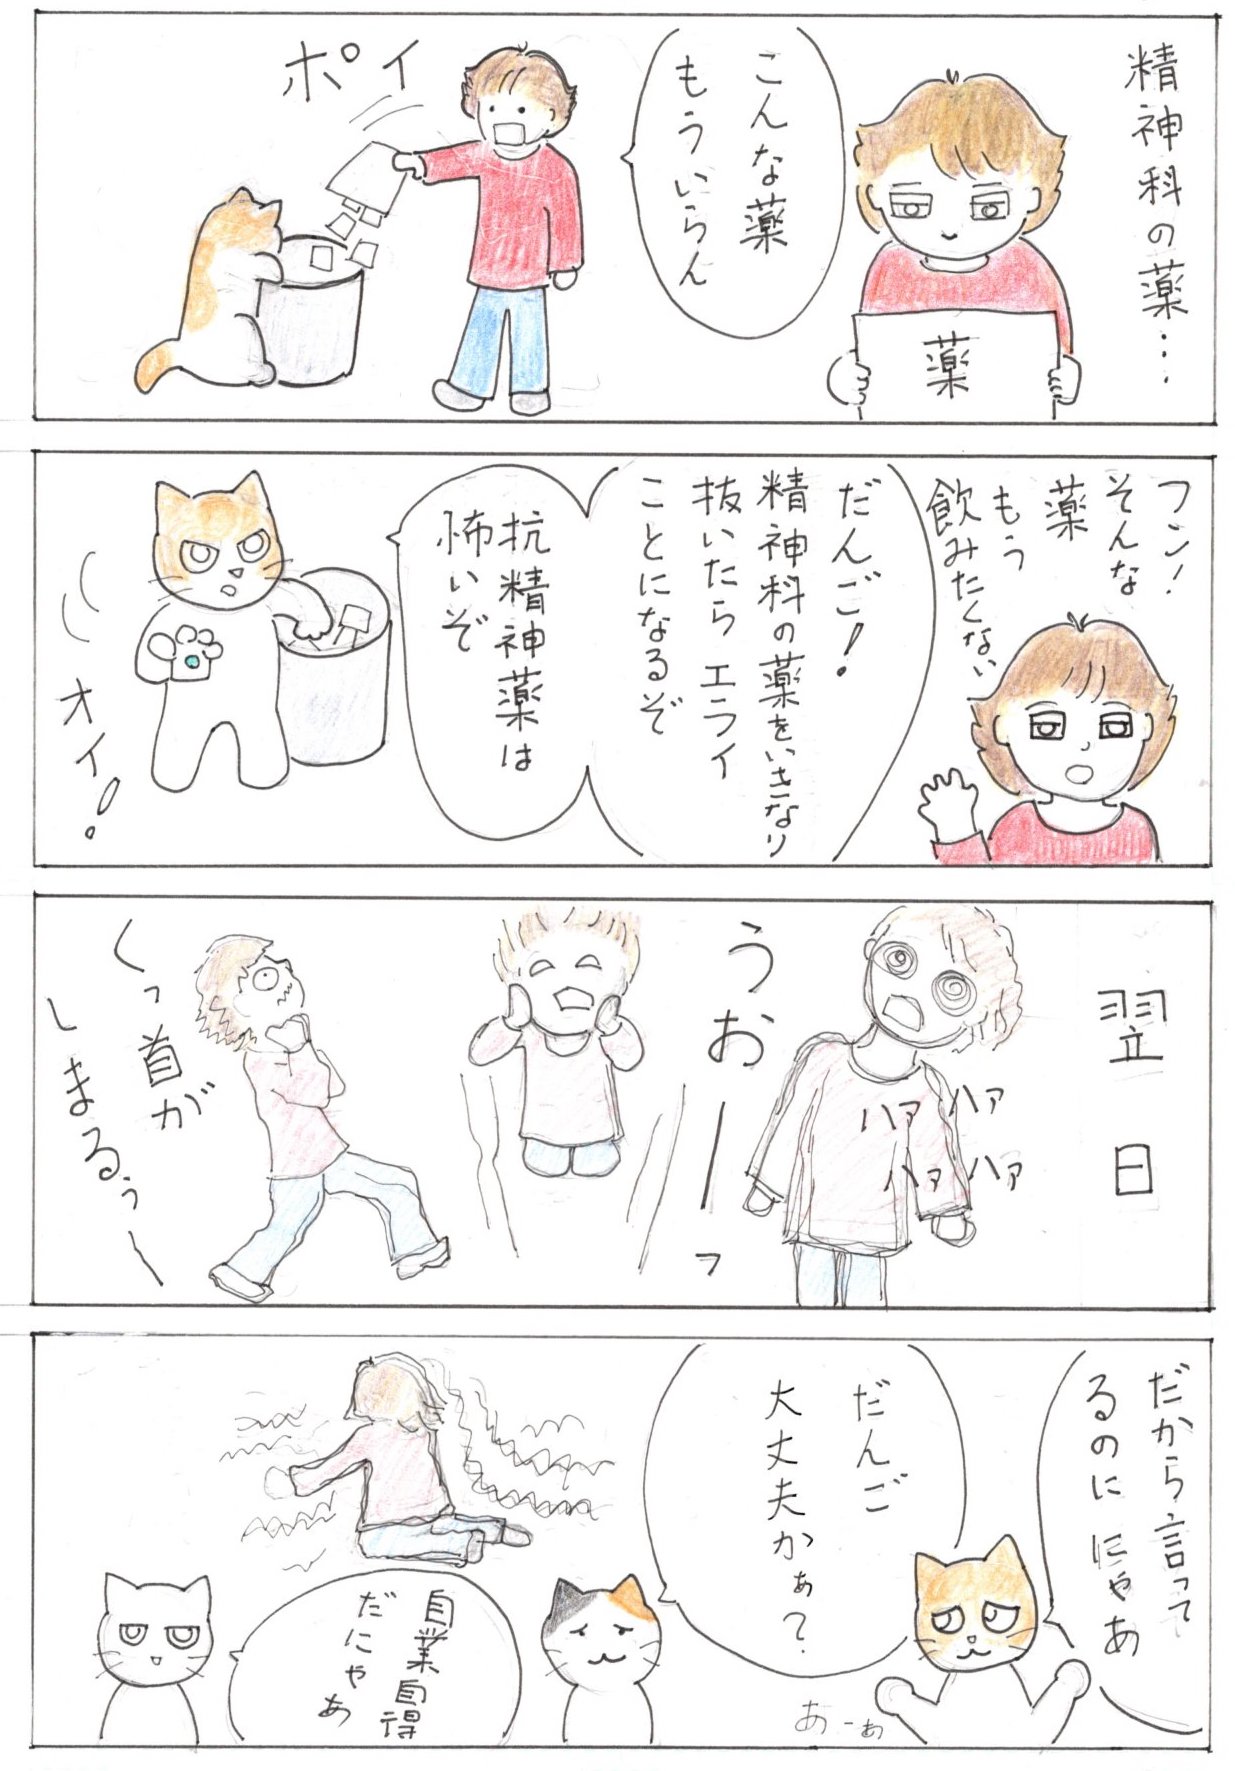 精神科の薬…
薬
こんな薬
もういらん
ポイ
フン!
そんな
薬
もう
飲みたくない
だんご!
精神科の薬をいきなり
抜いたらエライ
ことになるぞ
抗精神薬は
怖いぞ
オイ!
翌日
ハァ ハァ
ハァ ハァ
うおーっ
くっ首が
しまるぅー
だから言って
るのににゃあ
だんご
大丈夫かぁ?
あーぁ
自業自得
だにゃあ